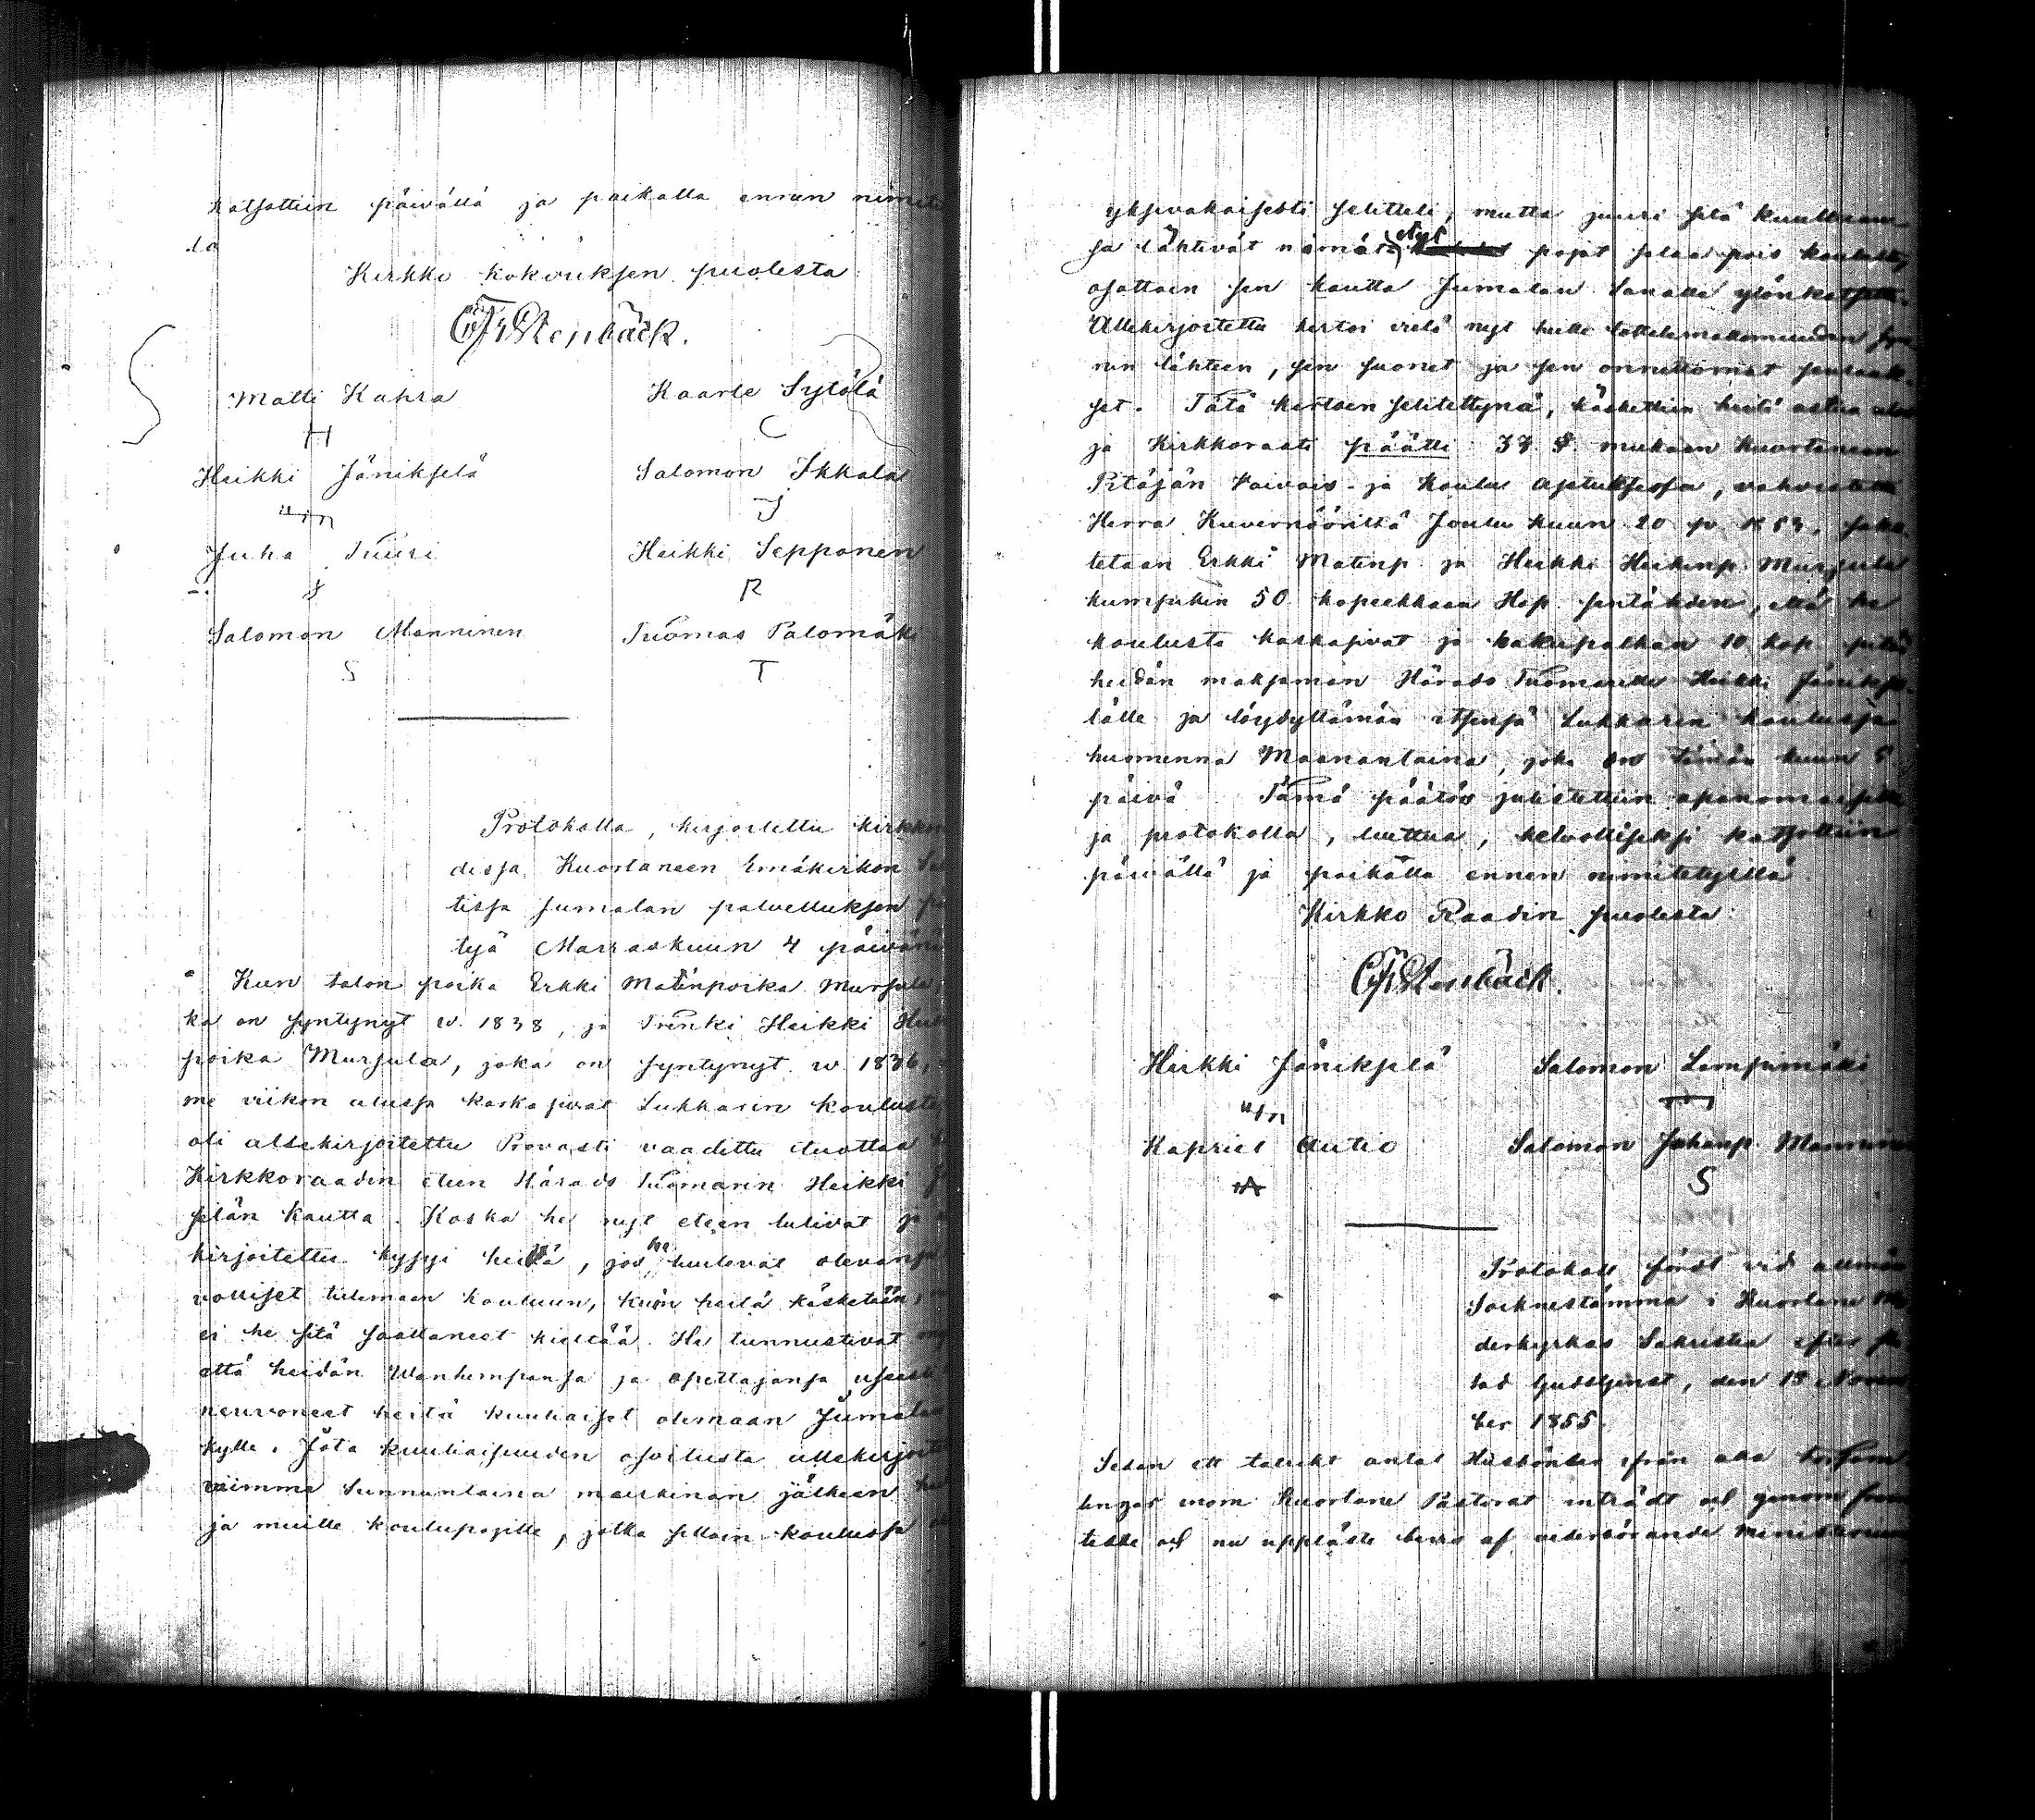 katsottiin päivällä ja paikalla ennen nimite
lä
Kirkko kokouksen puolesta
Stenbäck.
Matti Kahra Kaarle Sytölä
H C
Heikki Jänikselä Salomon Ikkala
J
Juha Tuuri Heikki Sepponen
J R
Salomon Manninen Tuomas Palomäki
S T
Protokolla, kirjoitettu kirkko
dissa Kuortaneen Emäkirkon Sa
tissa Jumalan palvelluksen
tyä Marraskuun 4 päivänä
Kun talon poika Erkki Matinpoika Mursula
ka on syntynyt w. 1838, ja Trenki Heikki Heik
poika Mursula, joka on syntynyt w. 1836,
me viikon alussa karkasivat Lukkarin koulusta
oli allekirjoitettu Provasti vaadittu tuottaa
Kirkkoraadin eteen Härads Tuomarin Heikki J
selän kautta. Koska he nyt eteen tulivat ja
kirjoitettu kysyi heiltä, jos he luulevat olevansa
tulemaan kouluun, kuin heitä käsketään,
ei he sitä saattaneet kieltää. He tunnustivat my
että heidän Wanhempansa ja opettajansa usiast
neuvoneet heitä kuuliaiset olemaan Jumalan
kylle. Jota kuuliaisuuden osoitusta allekirjoite
viimme Sunnuntaina messun jälkeen
ja muille koulupojille, jotka silloin koulussa
yksivakaisesti selitteli, mutta juuri sitä kuultuan
sa lähtivät nämät pojat salaa pois koulusta,
osottaen sen kautta Jumalan Sanalle ylönkatsetta.
Allekirjoitettu kertoi vielä nyt heille tottelemattomuuden
nen lähteen, sen juonet ja sen onnettomat seurauk-
set. Tätä kertoen selitettynä, käskettiin heitä astua ulos
ja Kirkkoraati päätti 37 § mukaan Kuortaneen
Pitäjän Vaivais- ja Koulu asetuksessa, vahvistettu
Herra Kuvernööriltä Joulu kuun 20 p 1853, saka-
tetaan Erkki Matinp ja Heikki Heikinp Mursula
kumpakin 50 kopeekkaan Hop. sentähden, että he
koulusta karkasivat ja hakupalkan 10 kop. pitää
heidän maksaman Härads Tuomarille Heikki Jänikse-
lälle ja löydyttämän itsensä Lukkarin koulussa
huomenna Maanantaina, joka on tämän kuun 5
päivä. Tämä päätös julistettiin asianomaisille
ja protokolla, luettua, kelvolliseksi katsottiin
päivällä ja paikalla ennen nimitetyillä
Kirkko Raadin puolesta
Stenbäck.
Heikki Jänikselä Salomon Lempimäki
Kapriel Autio Salomon Juhanp. Manninen
A S
Protokoll fördt vid allmän
Socknestämma i Kuortane Mo
derkyrkas Sakristia efter
tad Gudstjenst, den 18 Novem
ber 1855.
Sedan ett talrikt antal Husbönder ifrån alla
lingar inom Kuortane Pastorat inträdt och genom fram
tedde och nu uppläste bevis af vederbörande Ministerium